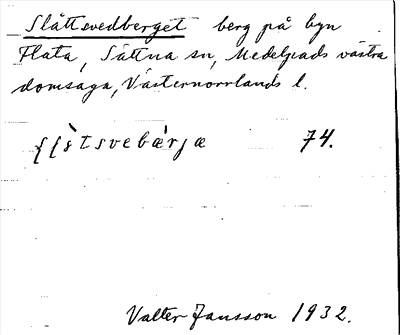 Slåttsvedberget berg på byn
Flata, Sättna sn, Medelpads västra
domsaga, Västernorrlands l.
74.
Valter Jansson 1932.